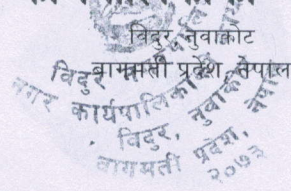 विदुर, नुवाकोट
बागमती प्रदेश, नेपाल
विदुर
नगर कार्यपालिका
विदुर, नुवाकोट
बागमती प्रदेश, नेपाल
२०७३